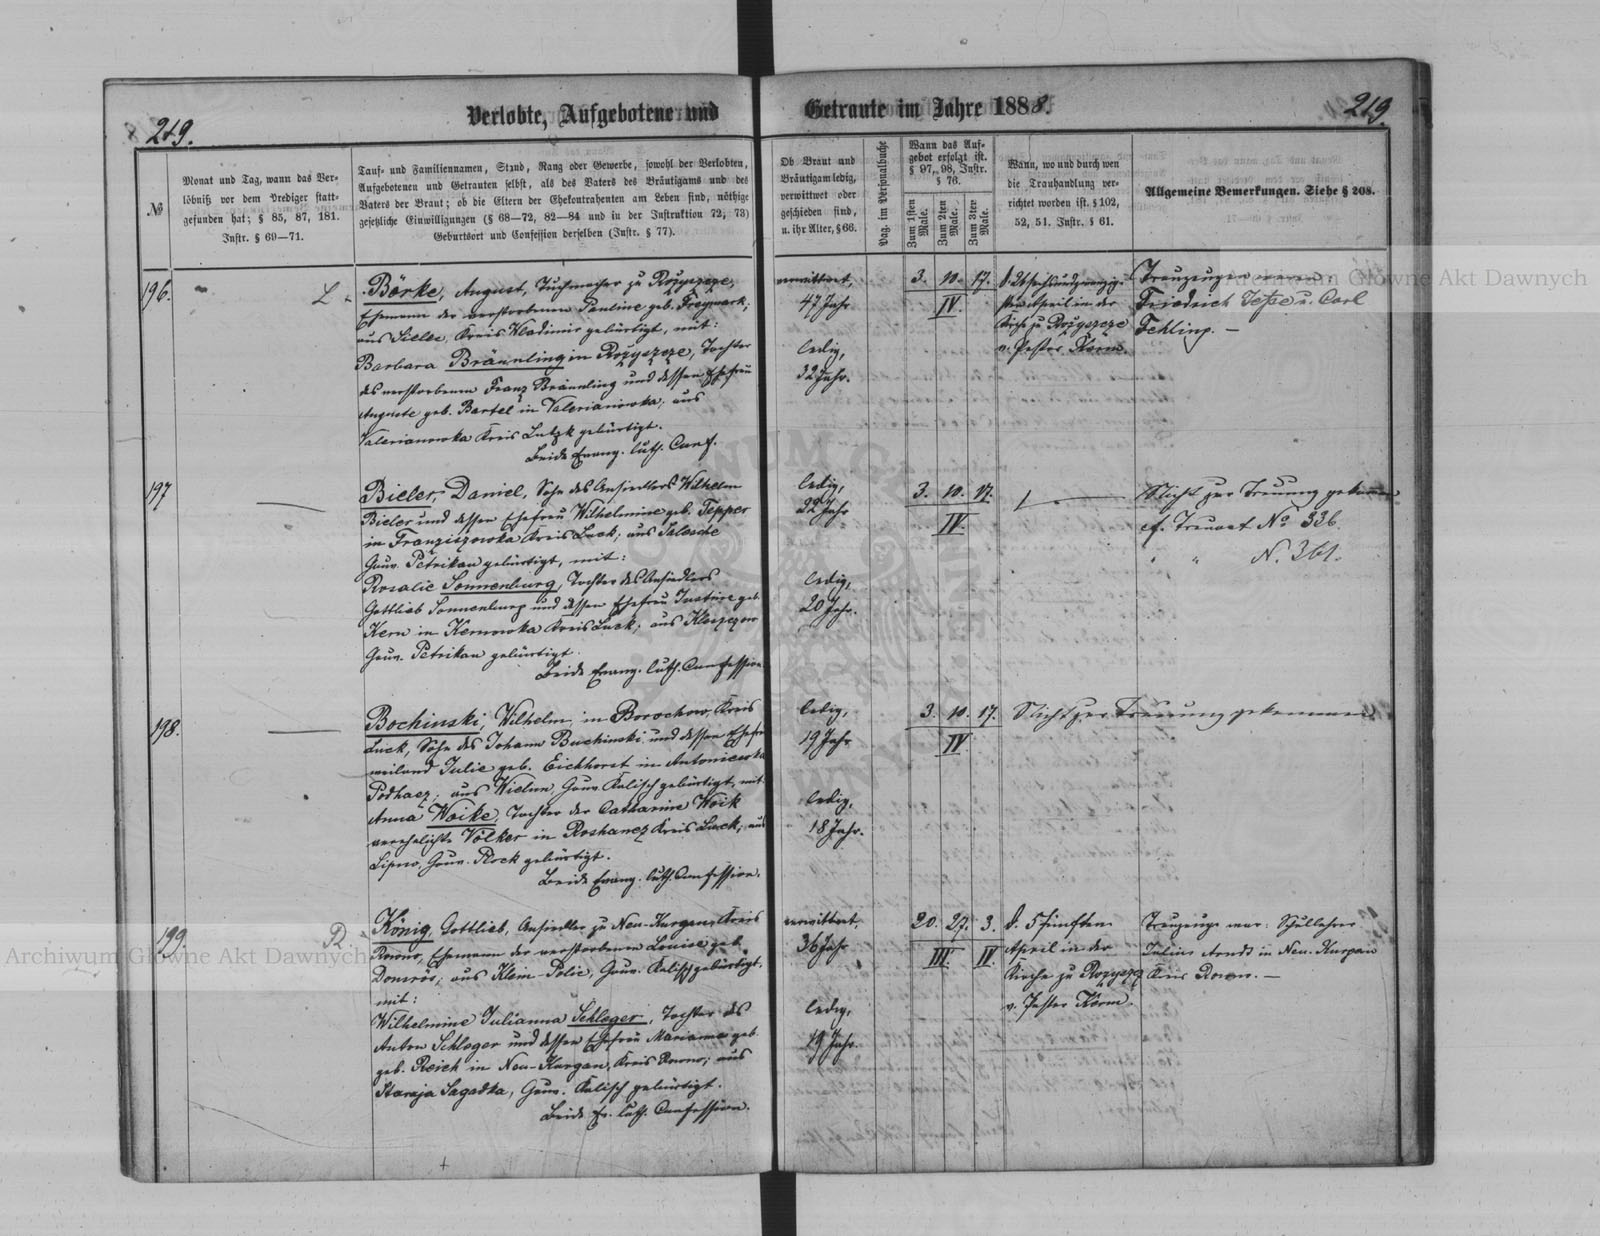 249.
Verlobte, Aufgebotene und
Getraute im Jahre 1888.
249.
№
Monat und Tag, wann das Ver-
löbniß vor dem Prediger statt-
gefunden hat; § 85, 87, 181.
Instr. § 69—71.
Tauf- und Familiennamen, Stand, Rang oder Gewerbe, sowohl der Verlobten,
Aufgebotenen und Getrauten selbst, als des Vaters des Bräutigams und des
Vaters der Braut; ob die Eltern der Ehekontrahenten am Leben sind, nöthige
gesetzliche Einwilligungen (§ 68—72, 82—84 und in der Instruktion 72, 73)
Geburtsort und Confession derselben (Instr. § 77).
Ob Braut und
Bräutigam ledig,
verwittwet oder
geschieden sind,
u. ihr Alter, § 66.
Pag. im Personalbuche
Wann das Auf-
gebot erfolgt ist.
§ 97, 98, Instr.
§ 76.
Zum 1sten Male.
Zum 2ten Male.
Zum 3ten Male.
Wann, wo und durch wen
die Trauhandlung ver-
richtet worden ist. § 102,
52, 51. Instr. § 61.
Allgemeine Bemerkungen. Siehe § 208.
196.
L.
Börke, August, Tuchmacher zu Rożyszcze,
Ehemann der verstorbenen Pauline geb. Freymark;
aus Sielec, Kreis Wladimir gebürtigt, mit:
Barbara Bräunling in Rożyszcze, Tochter
des verstorbenen Franz Bräunling und dessen Ehefrau
Auguste geb. Bartel in Valerianowka; aus
Valerianowka Kreis Lutzk gebürtigt.
Beide Evang. luth. Conf.
verwittwet,
47 Jahr
ledig,
32 Jahr.
3. 10. 17.
IV.
sten April in der
Kirche zu Rożyszcze
v. Pastor Kerm.
Trauzeugen waren:
Friedrich Jesse u. Carl
Fehling. —
197
Bieler, Daniel, Sohn des Ansiedlers Wilhelm
Bieler und dessen Ehefrau Wilhelmine geb. Tepper
in Franziszowka Kreis Luck; aus Salesche
Gouv. Petrikau gebürtigt, mit:
Rosalie Sonnenburg, Tochter des Ansiedlers
Gottlieb Sonnenburg und dessen Ehefrau Justine geb.
Kern in Kernowka Kreis Luck; aus Kleszczow
Gouv. Petrikau gebürtigt.
Beide Evang. luth. Confession.
ledig,
22 Jahr
ledig,
20 Jahr.
3. 10. 17.
IV.
Nicht zur Trauung gekommen
cf. Trauact No 336.
" " N. 361.
198.
Bochinski, Wilhelm, in Borochow, Kreis
Luck, Sohn des Johann Buchinski und dessen Ehefrau
weiland Julie geb. Eichhorst in Antoniewka
Podhaez; aus Wielun, Gouv. Kalisch gebürtigt, mit
Anna Woike, Tochter der Catharine Woik
verehelichte Völker in Roshanez Kreis Luck, aus
Lipno, Gouv. Plock gebürtigt.
Beide Evang. luth. Confession.
ledig,
19 Jahr
ledig,
18 Jahr.
3. 10. 17.
IV.
Nicht zur Trauung gekommen
199.
R.
König, Gottlieb, Ansiedler zu Neu-Kurgan, Kreis
Rowno, Ehemann der verstorbenen Louise geb.
aus Klein-Polie, Gouv. Kalisch gebürtigt,
mit:
Wilhelmine Julianna Schlager, Tochter des
Anton Schlager und dessen Ehefrau Marianna geb.
geb. Reich in Neu-Kurgan, Kreis Rowno; aus
Staraja Sagadka, Gouv. Kalisch gebürtigt.
Beide Ev. luth. Confession.
verwittwet,
36 Jahr
ledig,
19 Jahr.
20. 27. 3.
III. IV.
d. 5 fünften
April in der
Kirche zu Rożyszcz
v. Pastor Kerm.
Trauzeuge war: Schullehrer
Julius Arndt in Neu-Kurgan
Kreis Rowno. —
Archiwum Główne Akt Dawnych
Archiwum Główne Akt Dawnych